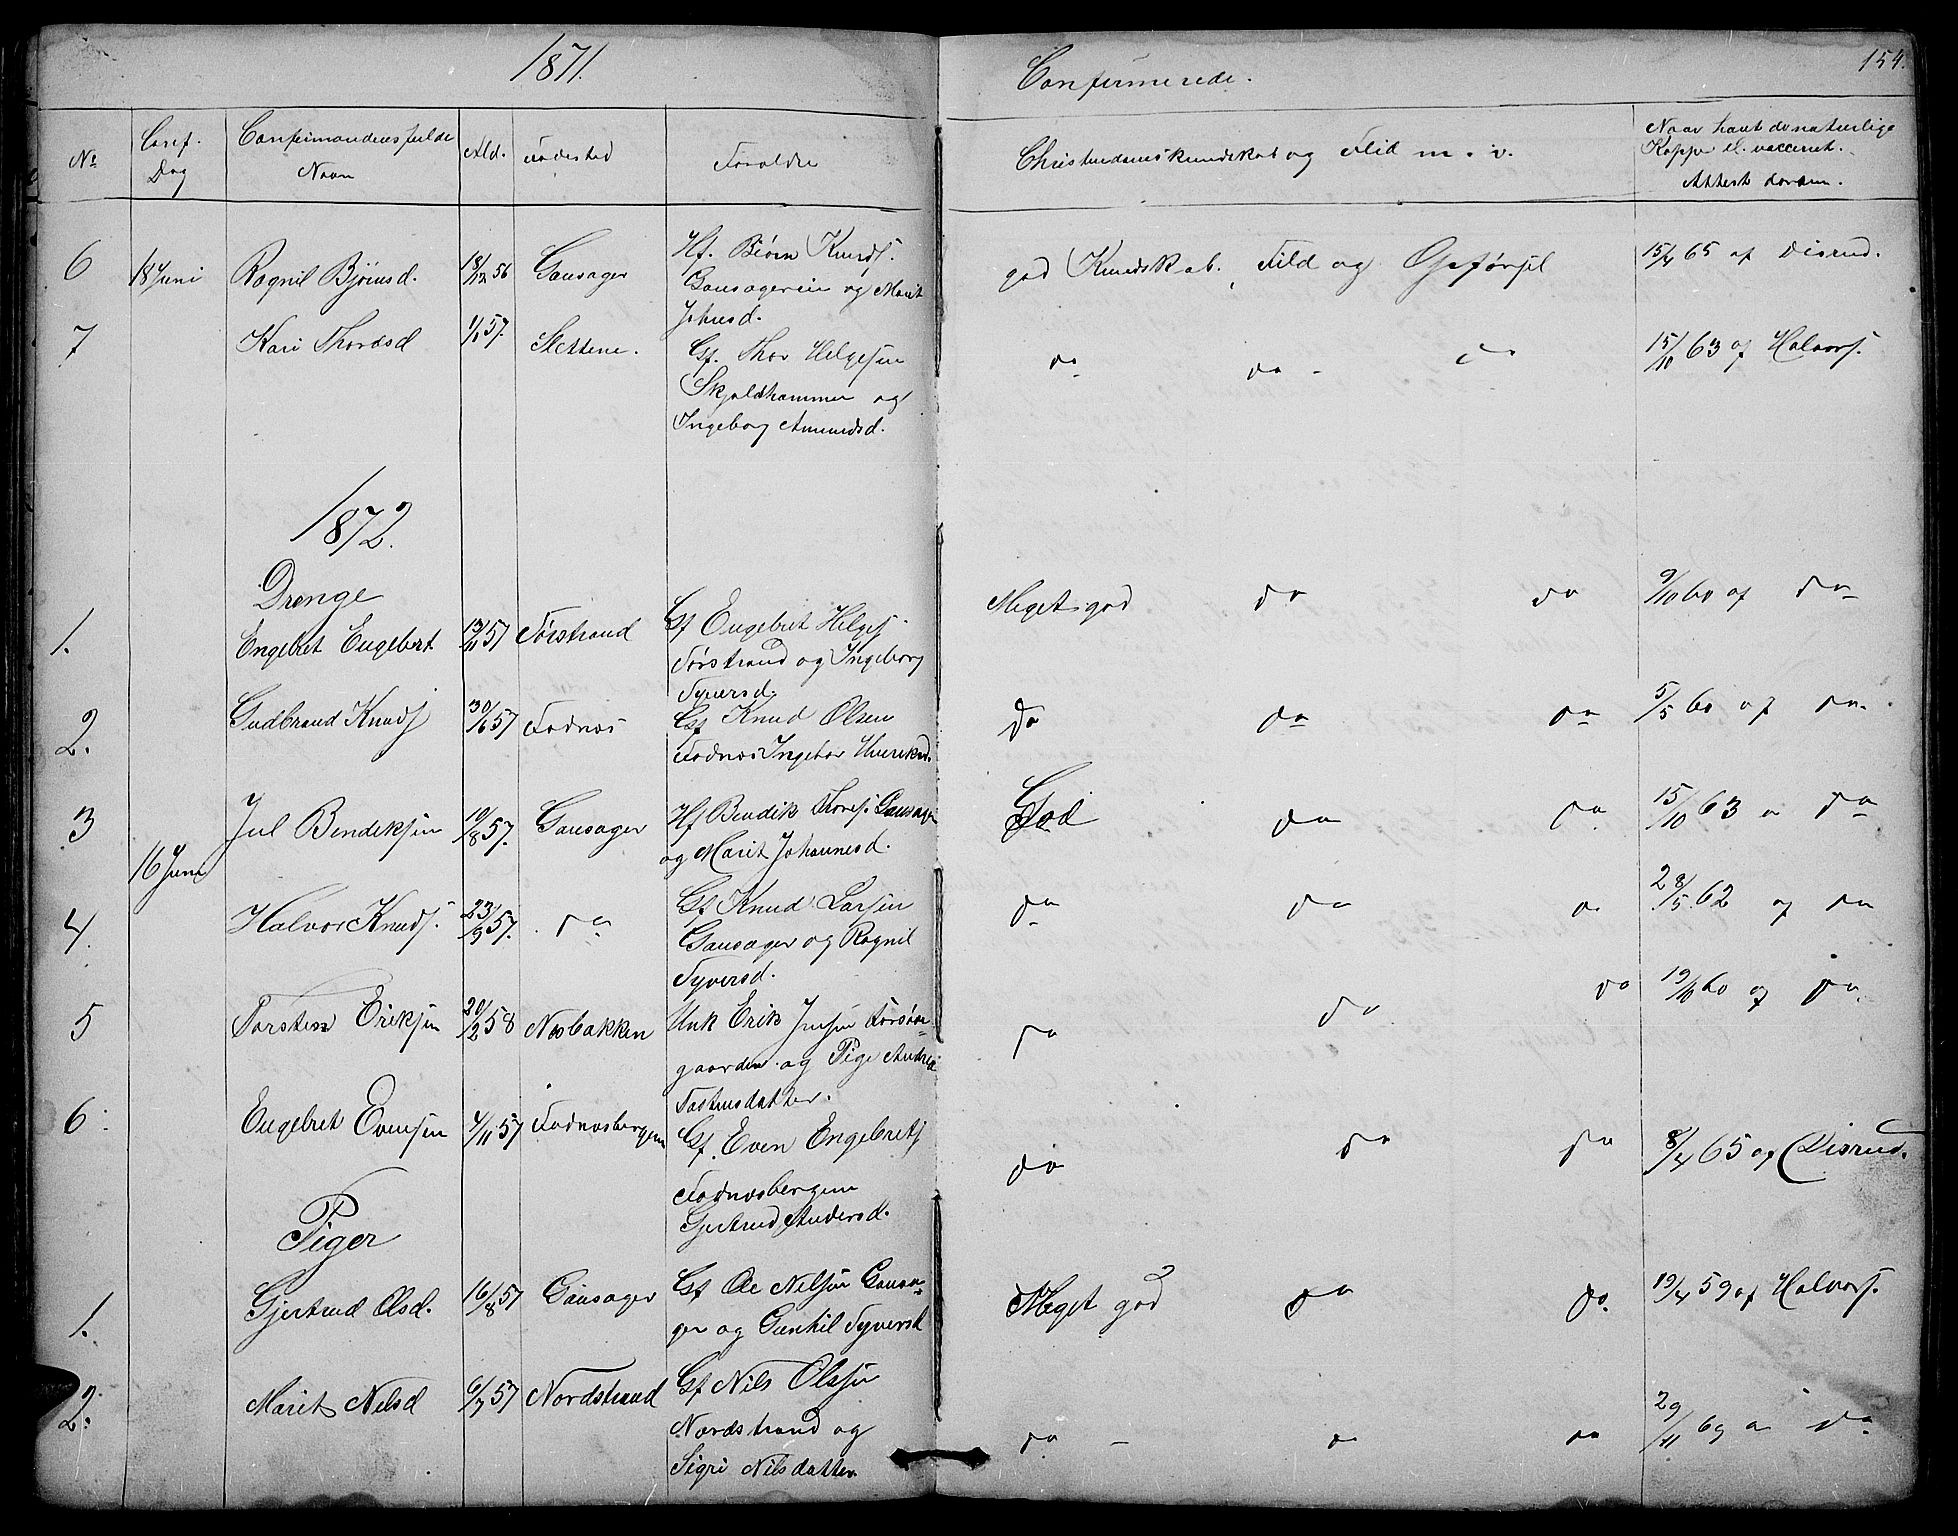 1871.
Confirmerede.
154.
No
Conf. Dag
Confirmandens fulde Navn
Ald.
Fødested
Forældre
Christendomskundskab og Flid m. v.
Naar havt de naturlige Kopper el. vaccineret. Attest derom.
6
18 Juni
Ragnil Bjørnsd.
18/12 56
Gausager
Hf. Biørn Knuds.
Gausagereie og Marit
Johnsd.
god Kundskab, Flid og Opførsel
15/4 65 af Disrud.
7
Kari Thorsd
1/1 57.
Slettene.
Gf. Thor Helgesen
Skjoldhammer og
Ingeborg Amundsd.
do do - do
15/10 63 af Halvors.
1872.
Drenge
1.
Engebret Engebert
13/11 57
Førstrand
Gf Engebret Helges.
Førstrand og Ingeborg
Syversd.
Meget god do do
9/10 60 af do
2.
Gudbrand Knuds
30/6 57
Fodnæs
Gf Knud Olsen
Fodnæs Ingebor
do do do
5/5 60 af do.
3
16 Juni
Jul Bendiksen
10/8 57.
Gausager
Hf Bendik Thores. Gausager
og Marit Johannesd.
God do do
15/10 63 a do
4.
Halvor Knuds.
23/9 57.
do
Gf Knud Larsen
Gausager og Ragnil
Syversd.
do do do
28/5 62 af do
5
Torsten Eriksen
20/2 58
Næsbakken
Unk Erik Jensen
gaarden og Pige
Tostensdatter.
do do do
19/10 60 af do.
6.
Engebret Evensen
4/11 57
Fodnæsbergene
Gf. Even Engebrets
Fodnæsbergene
Gjertrud Andersd.
do do do
8/4 65 af Disrud.
Piger
1.
Gjertrud Olsd.
16/8 57
Gausager
Gf Ole Nilsen Gausa-
ger og Gunhil Syversd
Meget god do do.
19/4 59 af Halvors.
2.
Marit Nilsd
6/7 57
Nordstrand
Gf Nils Olsen
Nordstrand og
Sigri Nilsdatter
do - do do
29/11 69 a do